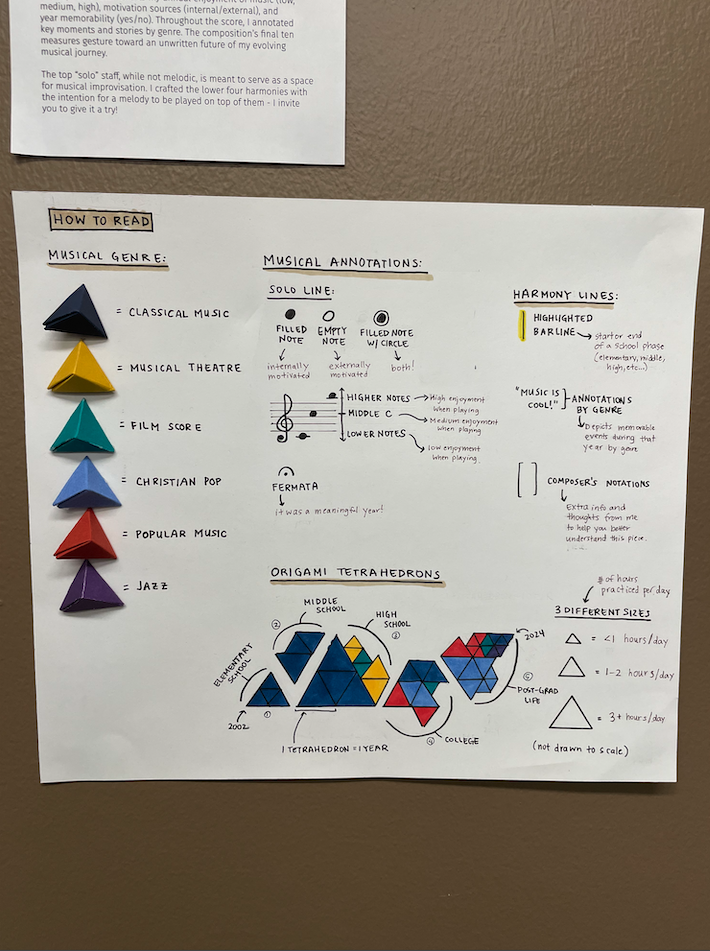 medium, high), motivation sources (internal/external), and
year memorability (yes/no). Throughout the score, I annotated
key moments and stories by genre. The composition's final ten
measures gesture toward an unwritten future of my evolving
musical journey.
The top "solo" staff, while not melodic, is meant to serve as a space
for musical improvisation. I crafted the lower four harmonies with
the intention for a melody to be played on top of them - I invite
you to give it a try!
HOW TO READ
MUSICAL GENRE:
= CLASSICAL MUSIC
= MUSICAL THEATRE
= FILM SCORE
= CHRISTIAN POP
= POPULAR MUSIC
= JAZZ
MUSICAL ANNOTATIONS:
SOLO LINE:
FILLED
NOTE
internally
motivated
EMPTY
NOTE
externally
motivated
FILLED NOTE
W/ CIRCLE
both!
HIGHER NOTES
High enjoyment
when playing
MIDDLE C
Medium enjoyment
when playing
LOWER NOTES
low enjoyment
when playing.
FERMATA
it was a meaningful year!
HARMONY LINES:
HIGHLIGHTED
BARLINE
start or end
of a school phase
(elementary, middle,
high, etc...)
"MUSIC IS
COOL!"
ANNOTATIONS
BY GENRE
Depicts memorable
events during that
year by genre
[ ] COMPOSER'S NOTATIONS
Extra info and
thoughts from me
to help you better
understand this piece.
ORIGAMI TETRAHEDRONS
ELEMENTARY
SCHOOL
①
2002
MIDDLE
SCHOOL
②
HIGH
SCHOOL
③
1 TETRAHEDRON = 1 YEAR
④ COLLEGE
2024
⑤
POST-GRAD
LIFE
# of hours
practiced per day
3 DIFFERENT SIZES
= <1 hours/day
= 1-2 hours/day
= 3+ hours/day
(not drawn to scale)